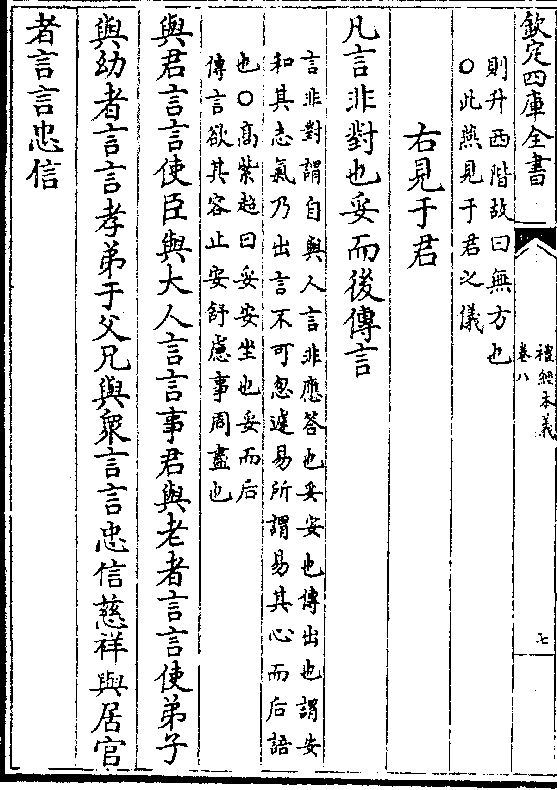 欽定四庫全書
禮經本義
卷八
七
則升西階故曰無方也
○此燕見于君之儀
右見于君
凡言非對也妥而後傳言
言非對謂自與人言非應答也妥安也傳出也謂安
和其志氣乃出言不可忽遽易所謂易其心而后語
也○高紫超曰妥安坐也妥而后
傳言欲其容止安舒慮事周盡也
與君言言使臣與大人言言事君與老者言言使弟子
與幼者言言孝弟于父兄與衆言言忠信慈祥與居官
者言言忠信